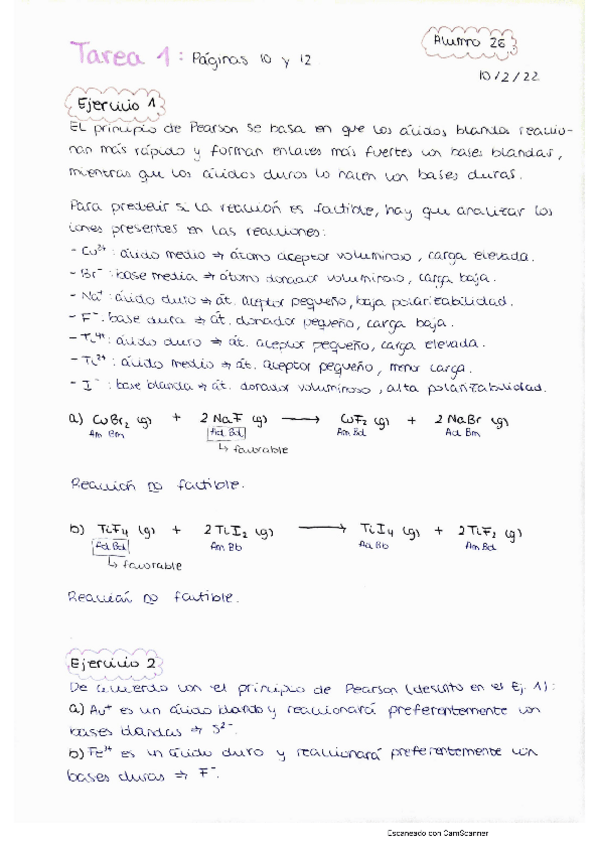 Tarea 1: Páginas 10 y 12
Alumno 26
10/2/22
Ejercicio 1
El principio de Pearson se basa en que los ácidos blandos reaccio-
nan más rápido y forman enlaces más fuertes con bases blandas,
mientras que los ácidos duros lo hacen con bases duras.
Para predecir si la reacción es factible, hay que analizar los
iones presentes en las reacciones:
- Cu²⁺: ácido medio ⇒ átomo aceptor voluminoso, carga elevada.
- Br⁻: base media ⇒ átomo donador voluminoso, carga baja.
- Na⁺: ácido duro ⇒ át. aceptor pequeño, baja polarizabilidad.
- F⁻: base dura ⇒ át. donador pequeño, carga baja.
- Ti⁴⁺: ácido duro ⇒ át. aceptor pequeño, carga elevada.
- Ti²⁺: ácido medio ⇒ át. aceptor pequeño, menor carga.
- I⁻: base blanda ⇒ át. donador voluminoso, alta polarizabilidad.
a) CuBr₂ (g) + 2 NaF (g) ⟶ CuF₂ (g) + 2 NaBr (g)
Am Bm Ad Bd Am Bd Ad Bm
↳ favorable
Reacción no factible.
b) TiF₄ (g) + 2 TiI₂ (g) ⟶ TiI₄ (g) + 2 TiF₂ (g)
Ad Bd Am Bb Ad Bb Am Bd
↳ favorable
Reacción no factible.
Ejercicio 2
De acuerdo con el principio de Pearson (descrito en el Ej. 1):
a) Au⁺ es un ácido blando y reaccionará preferentemente con
bases blandas ⇒ S²⁻.
b) Fe³⁺ es un ácido duro y reaccionará preferentemente con
bases duras ⇒ F⁻.
Escaneado con CamScanner